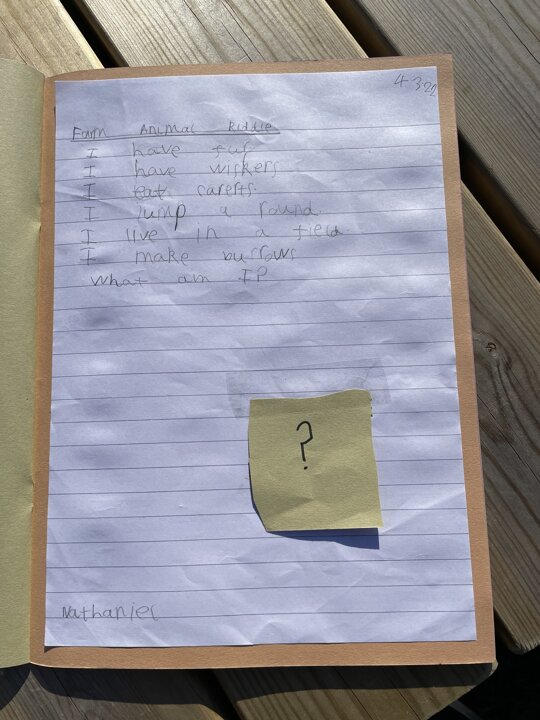 4-3-22
Farm Animal Riddle
I have fur
I have wiskers
I eat carerts.
I Jump a round.
I live in a field
I make burrows
What am I?
?
Nathaniel